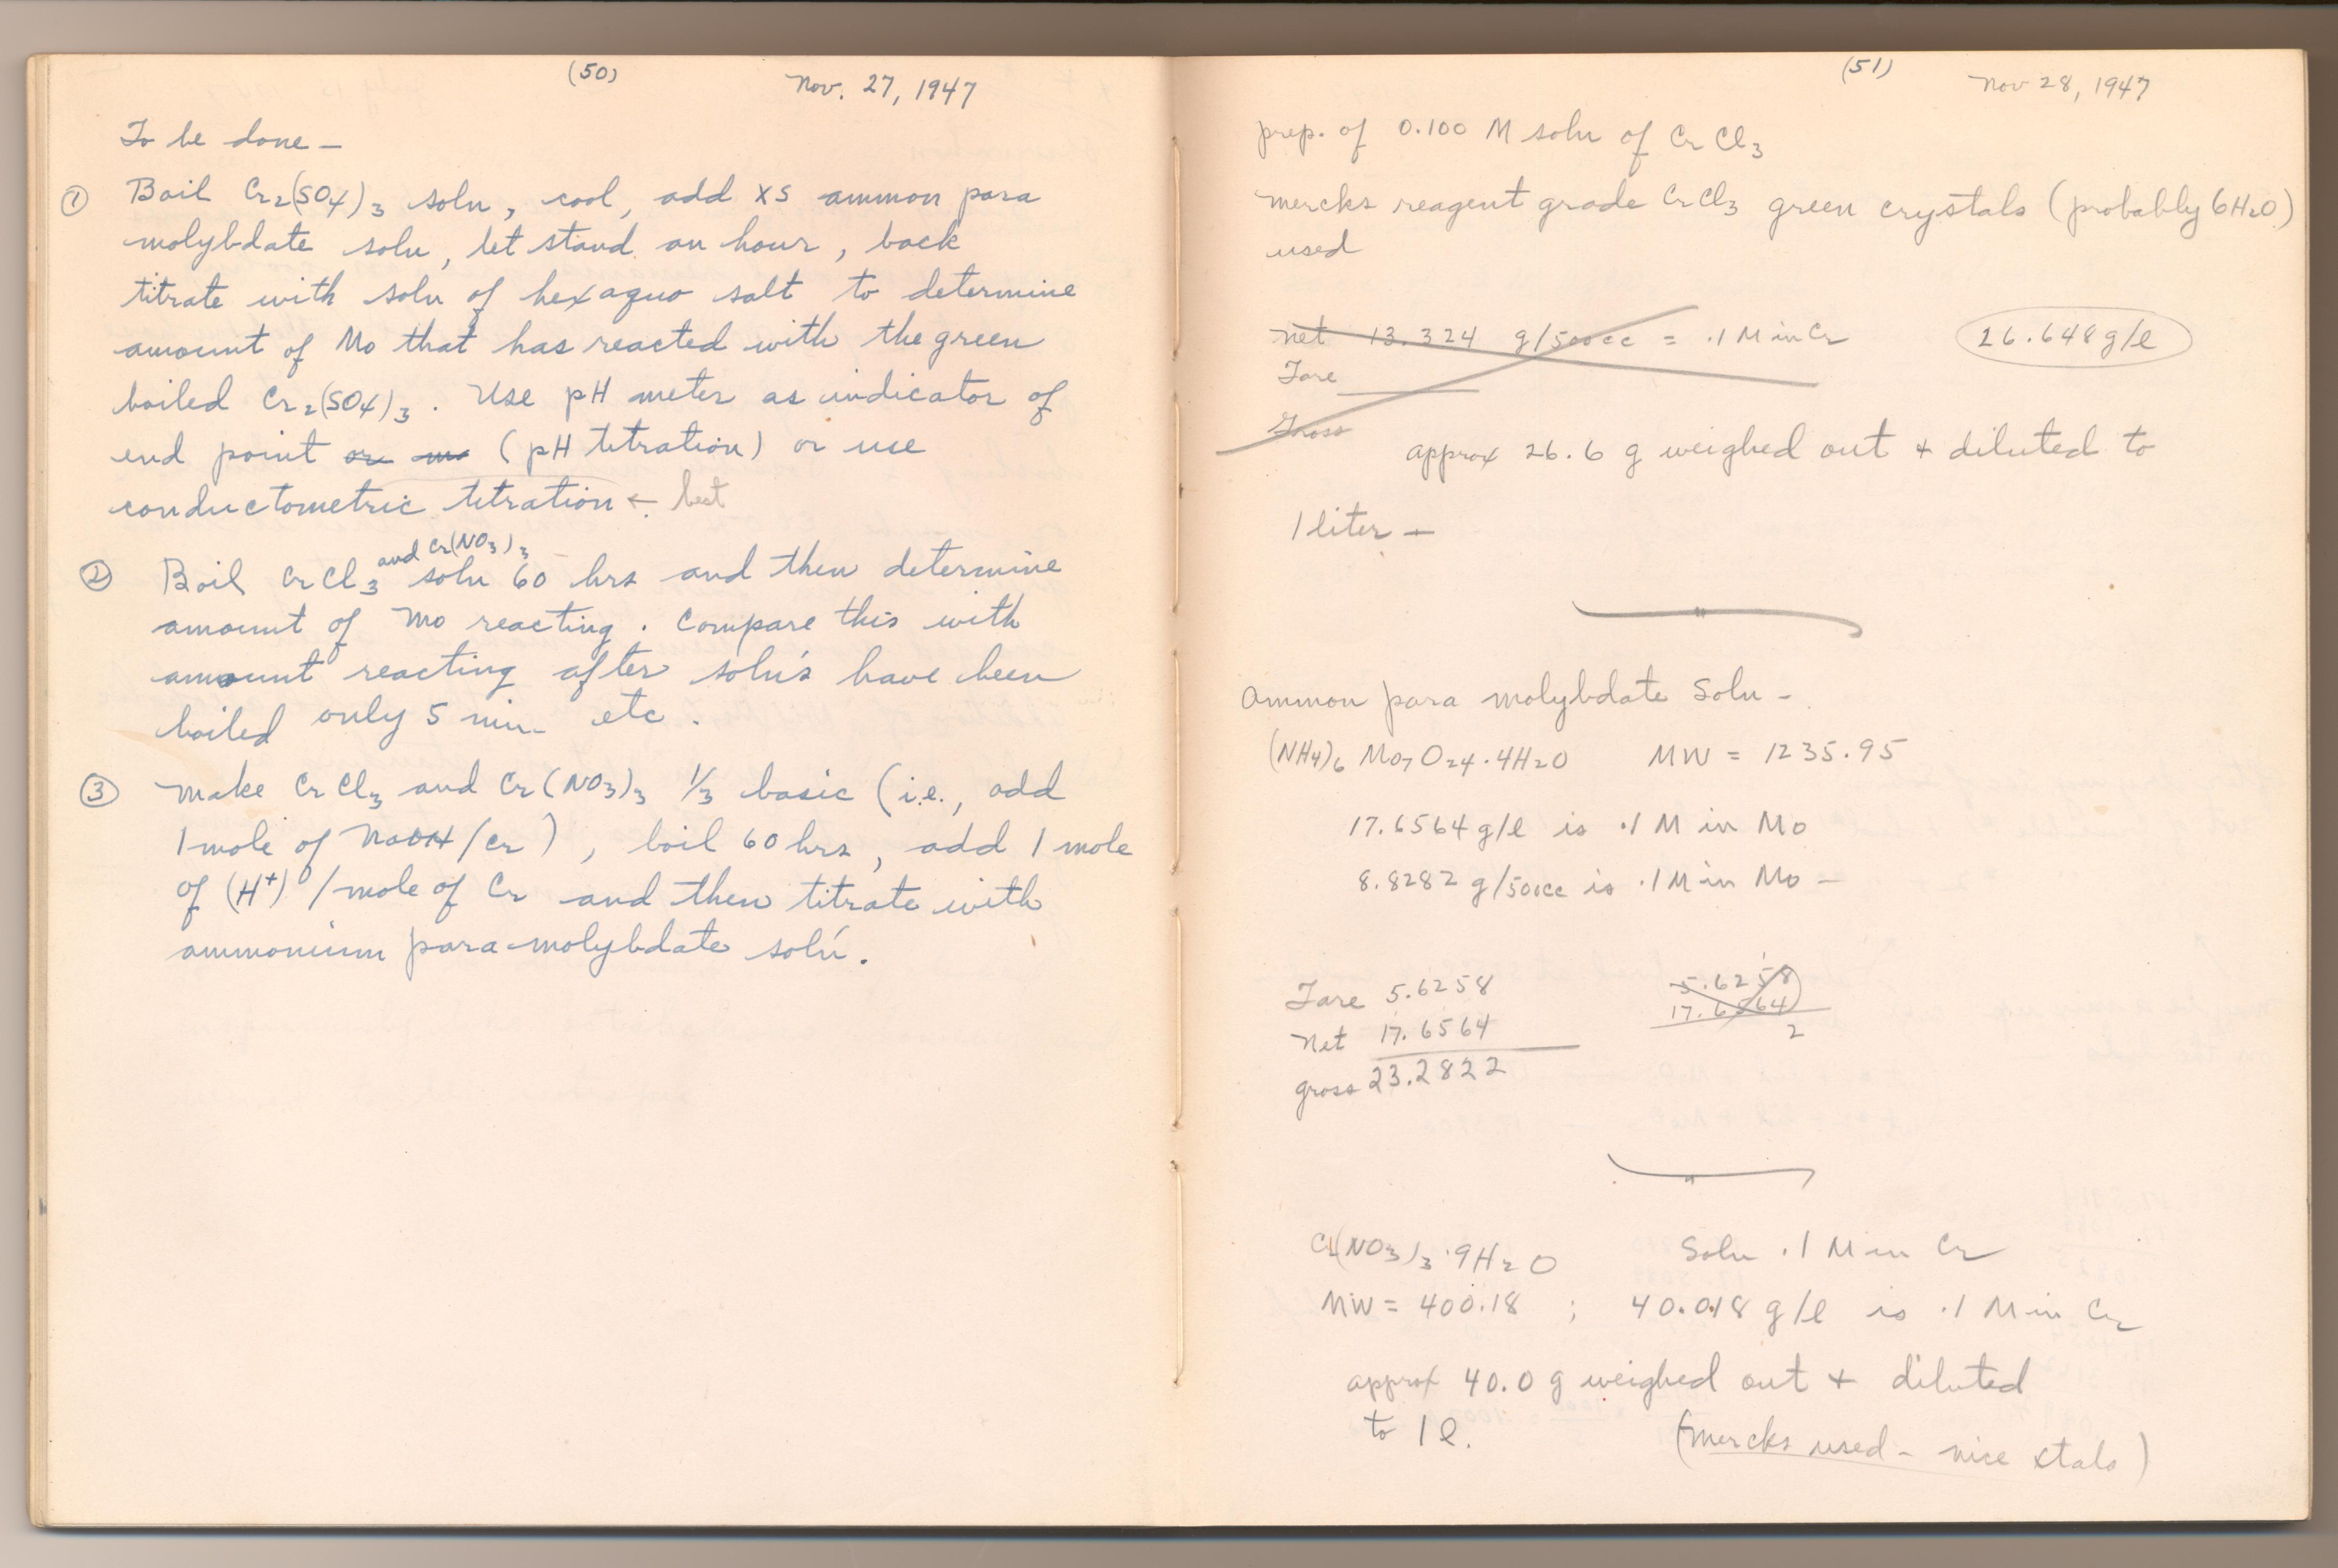 (50)
Nov. 27, 1947
To be done —
① Boil Cr₂(SO₄)₃ soln, cool, add xs ammon para
molybdate soln, let stand an hour, back
titrate with soln of hexaquo salt to determine
amount of Mo that has reacted with the green
boiled Cr₂(SO₄)₃. Use pH meter as indicator of
end point or (pH titration) or use
conductometric titration ← best
② Boil CrCl₃ and Cr(NO₃)₃ soln 60 hrs and then determine
amount of Mo reacting. Compare this with
amount reacting after soln's have been
boiled only 5 min etc.
③ Make CrCl₃ and Cr(NO₃)₃ 1/3 basic (i.e., add
1 mole of NaOH/Cr), boil 60 hrs, add 1 mole
of (H⁺)/mole of Cr and then titrate with
ammonium para-molybdate soln.
(51)
Nov 28, 1947
prep. of 0.100 M soln of CrCl₃
Mercks reagent grade CrCl₃ green crystals (probably 6H₂O)
used
net 13.324 g/500cc = .1 M in Cr 26.648 g/l
Tare
Gross
approx 26.6 g weighed out + diluted to
1 liter —
Ammon para molybdate Soln -
(NH₄)₆ Mo₇O₂₄·4H₂O MW = 1235.95
17.6564 g/l is .1 M in Mo
8.8282 g/500cc is .1 M in Mo —
Tare 5.6258 5.6258
Net 17.6564 17.6564
gross 23.2822 2
Cr(NO₃)₃·9H₂O Soln .1 M in Cr
MW = 400.18 ; 40.018 g/l is .1 M in Cr
approx 40.0 g weighed out + diluted
to 1 l. (Mercks used - nice xtals)